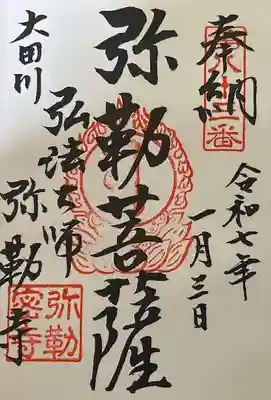 奉納
令和七年
一月三日
弥勒菩薩
大田川
弘法大師
弥勒寺
弥勒
密寺